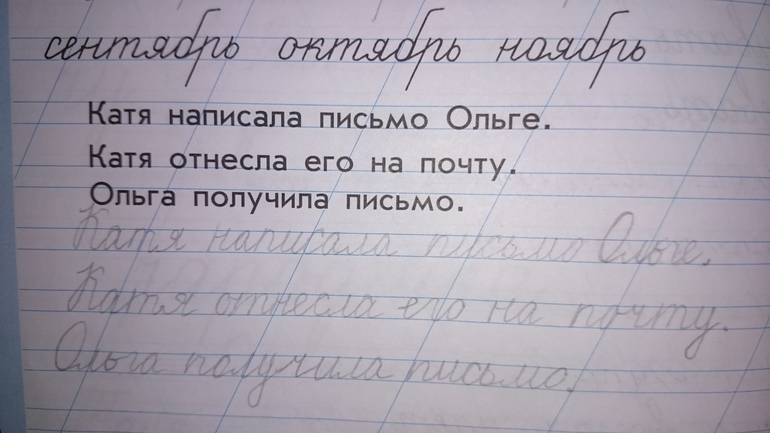 сентябрь октябрь ноябрь
Катя написала письмо Ольге.
Катя отнесла его на почту.
Ольга получила письмо.
Катя написала письмо Ольге.
Катя отнесла его на почту.
Ольга получила письмо.